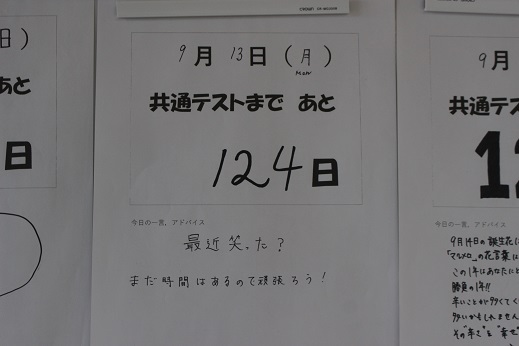 日)
あと
日
9月 13日 (月)
Mon
共通テストまで あと
124日
今日の一言、アドバイス
最近笑った?
まだ時間はあるので頑張ろう!
9月
共通テス
12
今日の一言、アドバイス
9月14日の誕生花に
「マルメロ」の花言葉に
この1年はあなたにと
勝負の1年!!
辛いことが多くてく
多いかもしれません
その"辛さ"と"幸せ"